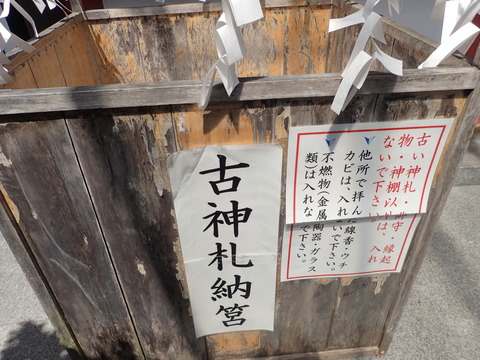 古い神札・守・縁起
物・神棚以は、入れ
ないで下さい。
他所で拝んだ線香・ウチ
カビは、入れないで下さい。
不燃物(金属・陶器・ガラス
類)は入れないで下さい。
古神札納筥